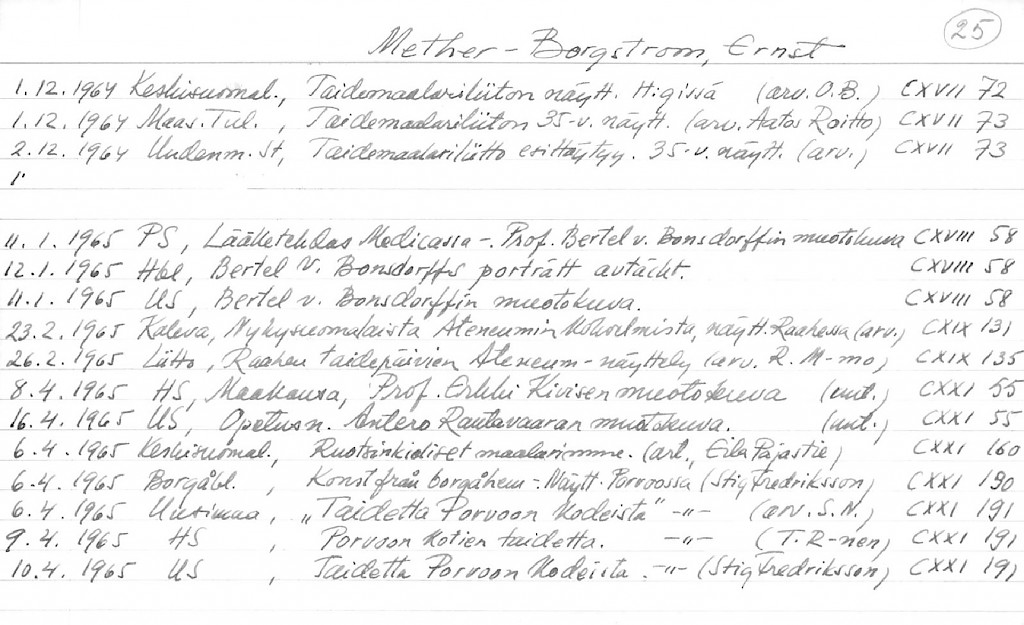 25
Mether-Borgstrom, Ernst
1.12.1964 Keskisuomal., Taidemaalariliiton näytt. H:gissä (arv. O.B.) CXVII 72
1.12.1964 Maas.Tul., Taidemaalariliiton 35-v. näytt. (arv. Aatos Roitto) CXVII 73
2.12.1964 Uudenm.St, Taidemaalariliitto esittäytyy. 35-v. näytt. (arv.) CXVII 73
11.1.1965 PS, Lääketehdas Medicassa - Prof. Bertel v. Bonsdorffin muotokuva CXVIII 58
12.1.1965 Hbl, Bertel v. Bonsdorffs porträtt avtäckt. CXVIII 58
11.1.1965 US, Bertel v. Bonsdorffin muotokuva. CXVIII 58
23.2.1965 Kaleva, Nykysuomalaista Ateneumin kokoelmista, näytt. Raahessa (arv.) CXIX 131
26.2.1965 Liitto, Raahen taidepäivien Ateneum-näyttely (arv. R. M-mo) CXIX 135
8.4.1965 HS, Maakausa, Prof. Erkki Kivisen muotokuva (uut.) CXXI 55
16.4.1965 US, Opetusn. Antero Rautavaaran muotokuva. (uut.) CXXI 55
6.4.1965 Keskisuomal., Ruotsinkieliset maalarimme. (art., Eila Pajastie) CXXI 160
6.4.1965 Borgåbl., Konst från borgåhem - Näytt. Porvoossa (Stig Fredriksson) CXXI 190
6.4.1965 Uusimaa, "Taidetta Porvoon kodeista" -"- (arv. S.N.) CXXI 191
9.4.1965 HS, Porvoon kotien taidetta. -"- (T.R-nen) CXXI 191
10.4.1965 US, Taidetta Porvoon kodeista. -"- (Stig Fredriksson) CXXI 191